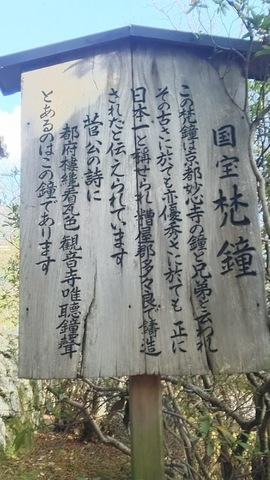 国宝梵鐘
この梵鐘は京都妙心寺の鐘と兄弟と云われ
その古さに於ても亦優秀さに於ても 正に
日本一と称せられ 糟屋郡多々良で鋳造
されたと伝えられています
菅公の詩に
都府楼纔看瓦色 觀音寺唯聴鐘聲
とあるのはこの鐘であります